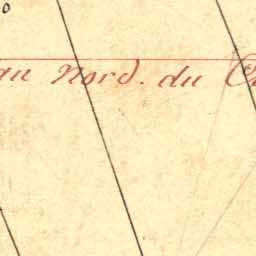 au Nord. du